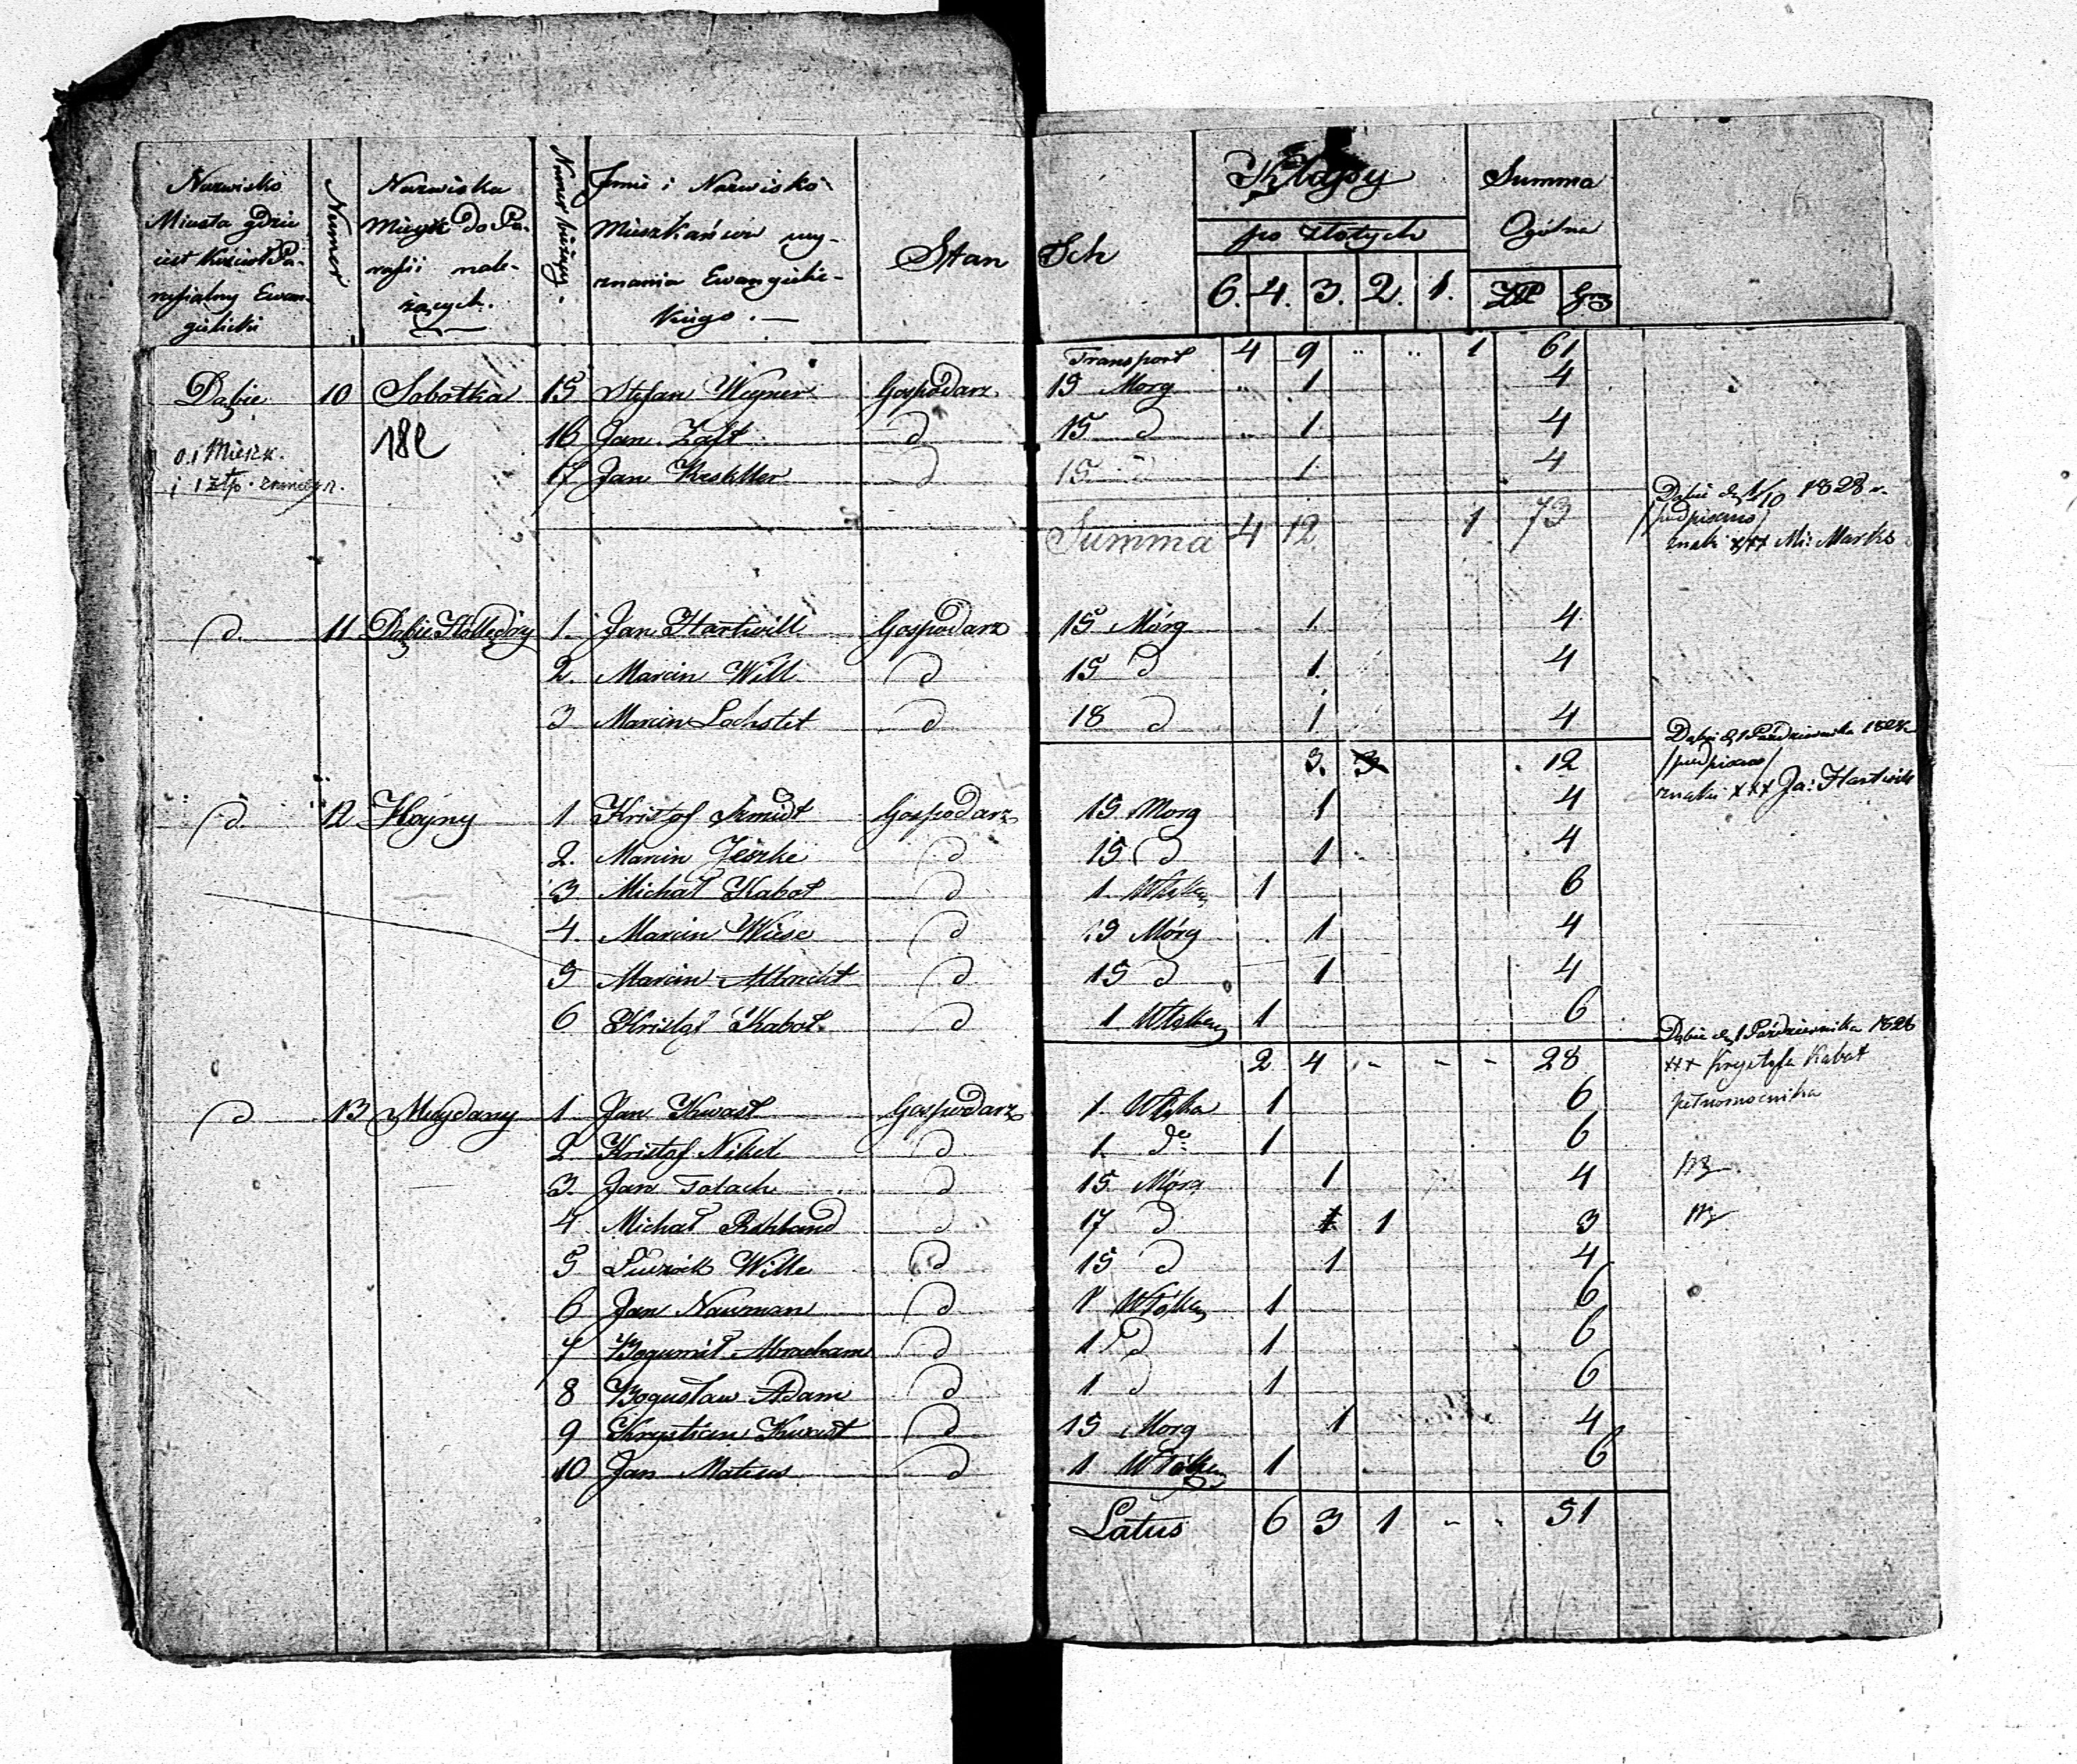 Nazwisko Miasta gdzie iest Kościoł Parafialny Ewangelicki | Numer | Nazwiska Mieysc do Parafii należących. | Numer bieżący. | Jmie i Nazwisko Mieszkańców wyznania Ewangielickiego. — | Stan | Klassy po złotych 6. 4. 3. 2. 1. | Summa Ogólna ZłP Gr
Transport 4 9 .. .. 1 61
Dąbie 10 Sobotka 15 Stefan Weyner Gospodarz 15 Morg .. 1 4
182 16 Jan Zaft d 15 d .. 1 4
17 Jan Kesktler d 15 d 1 4
i 1 złp.
Summa 4 12 1 73
Dąbie d. 1/10 1828 r.
/podpisano/
znaki xxx Mi: Marks
d. 11 Dąbie Hollędry 1. Jan Hartwill Gospodarz 15 Mórg 1. 4
2. Marcin Will d 15 d 1. 4
3 Marcin Lochstet d 18 d 1 4
3. 3 12
Dąbie d. 1 Października 1828
/podpisano/
znaki xxx Ja: Hartwik
d. 12 Hoyny 1 Kristof Szmidt Gospodarz 15 Morg 1 4
2. Marcin Jeszke d 15 d 1 4
3 Michał Kabot d 1 Włóken 1 6
4. Marcin Wiese d 15 Mórg 1 4
5 Marcin Albrecht d 15 d 1 4
6 Kristof Kabot d 1 Włóken 1 6
2 4 - - - 28
Dąbie d. 1 Października 1828
xxx Krysztofa Kabat
pełnomocnika
d 13 Maydany 1 Jan Kwast Gospodarz 1. Włóka 1 6
2. Kristof Nikel d 1. do 1 6
3. Jan Tolach d 15 Mórg 1 4
4 Michał Rehband d 17 d 1 1 3
5 Wille d 15 d 1 4
6 Jan Nauman d 1 Włóken 1 6
7 Bogumił Abracham d 1 d 1 6
8 Bogusław Adam d 1 d 1 6
9 Krystian Kwast d 15 Morg 1 4
10 Jan Mateus d 1 Włóken 1 6
Latus 6 3 1 - - 51